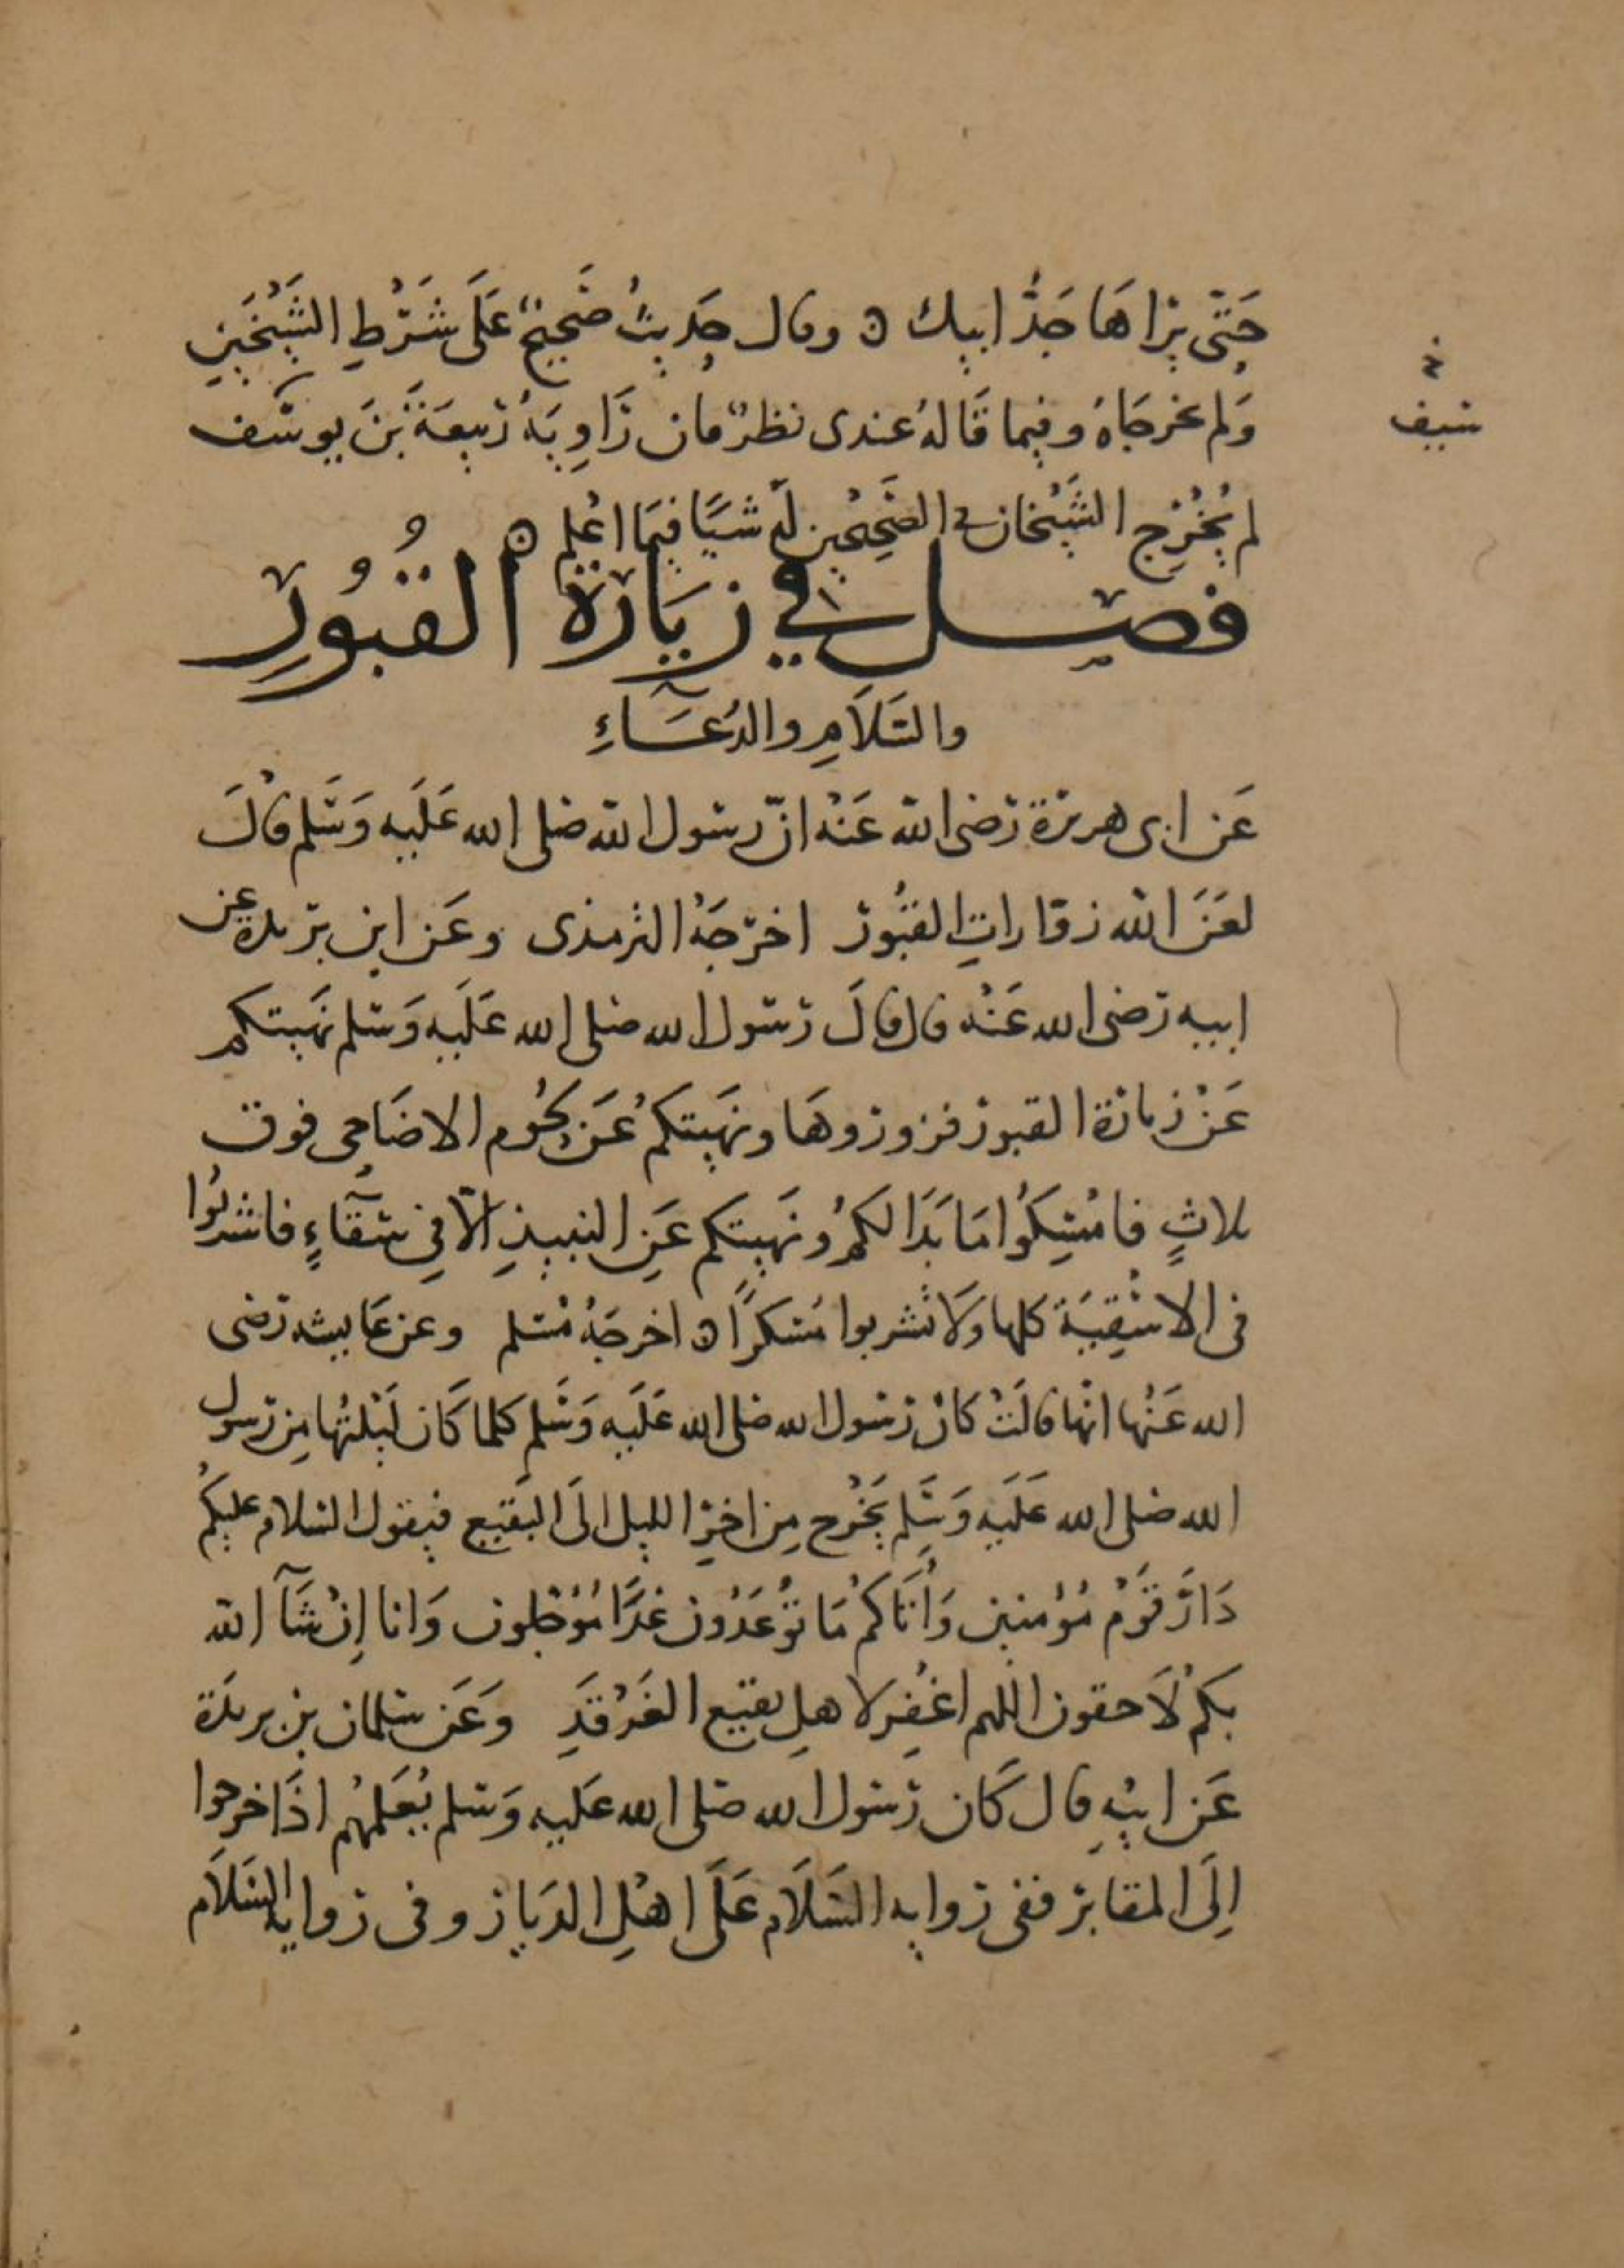 حَتّى يرَاهَا جَدُّ ابيك ه وقال حَديثٌ صَحِيحٌ عَلَى شَرْطِ الشَّيْخَينِ
وَلم يخرجَاهُ وفيما قَالهُ عندى نظرٌ فان رَاوِيَهُ رَبيعَةَ بْنَ يوسُف
سيف
لم يُخْرِج الشَّيْخان في الصَّحِيْحين لهُ شيًا فيمَا اعْلم ه
فصل في زيَارة القبُورِ
والسَّلَامِ والدُعَاءِ
عَن ابى هريرة رَضى الله عَنْهُ انّ رسُول الله صَلى الله عَلَيه وَسَلم قالَ
لعَنَ الله زوّاراتِ القبُور اخرجَهُ الترمذى وعَن ابن بريدة عن
ابيه رَضى الله عَنْهُ قال قالَ رَسُول الله صَلى الله عَلَيه وَسَلم نهَيتكم
عَنْ زيارة القبور فزوروهَا ونهَيتكمْ عَن لحُوم الاضَاحى فوق
ثلاثٍ فامْسِكُوا مَا بَدَا لكمْ ونهَيتكم عَنِ النبيذِ الّا فِي سقَاءٍ فاشربُوا
فى الاسْقِيَة كلها وَلَا تشربوا مُسكرًا ه اخرجَهُ مُسلم وعن عَايشه رَضى
الله عَنْها انّها قالَتْ كان رَسُول الله صَلى الله عَلَيه وَسَلم كلما كَان لَيْلتُها مِن رَسول
الله صَلى الله عَلَيه وَسَلم يَخْرُج مِن اخِر الليل الَى البَقيع فيقول السَّلام عليكُمْ
دَارَ قَوْم مُؤْمنين وَأتَاكمْ مَا تُوْعَدُون غدًا مُؤَجلون وَانا اِنْ شَآ الله
بكمْ لَاحقون اللهم اغْفِر لاهلِ بقيع الغَرْقَدِ وَعَن سليمان بن بريدَة
عَن ابيْهِ قال كَان رَسُول الله صَلى الله عَليه وَسَلم يُعَلمهُم اذَا خرجوا
اِلَى المقابر ففى رَوايه السَّلَام عَلَى اهْلِ الديَار وفى رَوايه السَّلَام